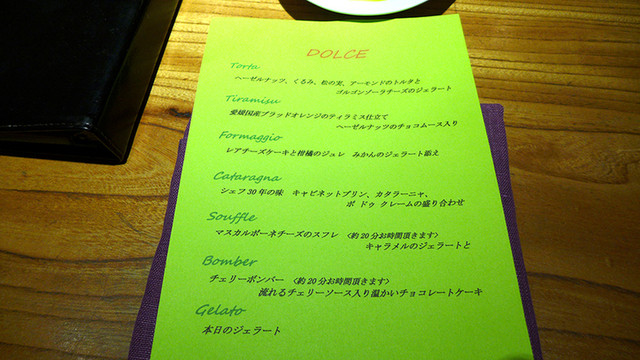 DOLCE
Torta
ヘーゼルナッツ、くるみ、松の実、アーモンドのトルタと
ゴルゴンゾーラチーズのジェラート
Tiramisu
愛媛国産ブラッドオレンジのティラミス仕立て
ヘーゼルナッツのチョコムース入り
Formaggio
レアチーズケーキと柑橘のジュレ みかんのジェラート添え
Cataragna
シェフ30年の味 キャビネットプリン、カタラーニャ、
ポ ドゥ クレームの盛り合わせ
Souffle
マスカルポーネチーズのスフレ 〈約20分お時間頂きます〉
キャラメルのジェラートと
Bomber
チェリーボンバー 〈約20分お時間頂きます〉
流れるチェリーソース入り温かいチョコレートケーキ
Gelato
本日のジェラート